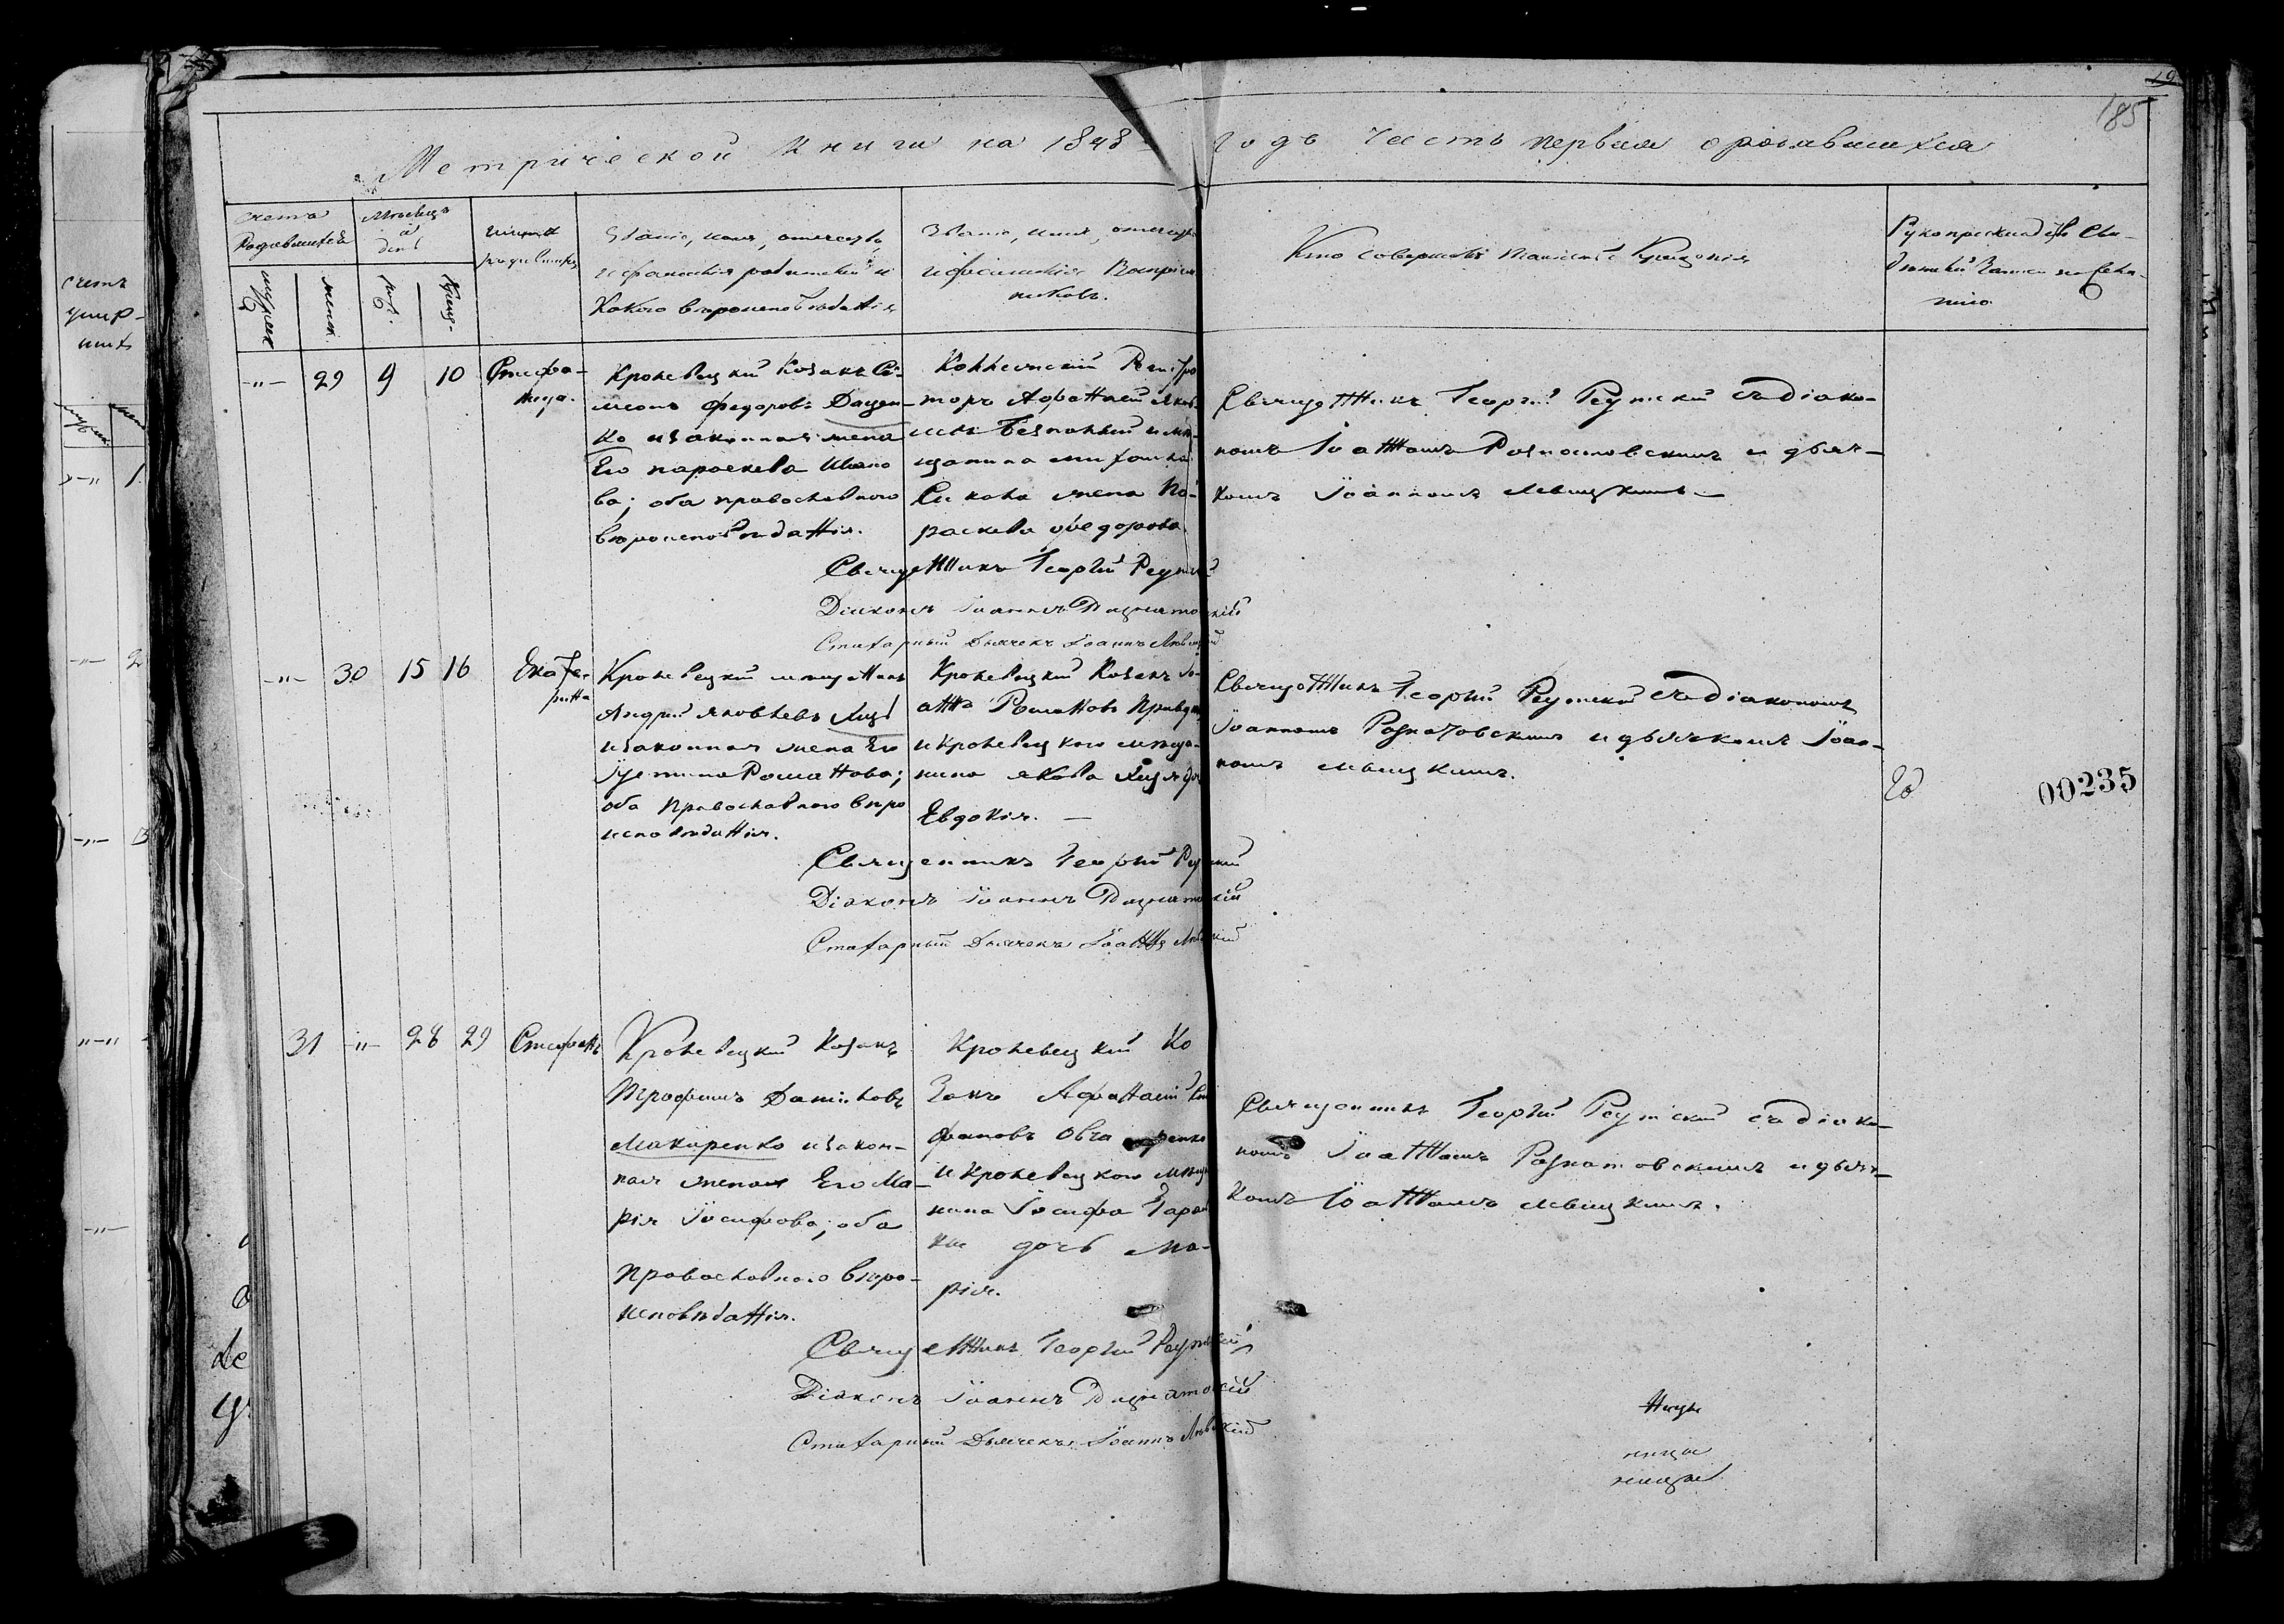 19
185
Метрической книги на 1848 годъ часть первая о родившихся
Счетъ
Родившихся
Мѣсяцъ
и
день
Имена
родившихся
Званіе, имя, отечество,
и фамилія родителей и
какого вѣроисповѣданія
Званіе, имя, отечество
и фамилія Воспріем
никовъ.
Кто совершалъ таинство Крещенія
Рукоприкладство Сви-
дѣтелей записи по жела-
нію
мужск
женск
рожд.
Крещ-
счетъ
умер-
шихъ
-"- 29 9 10 Стефа-
нида.
Кролевецкій Козакъ Си-
меонъ Федоровъ Дацен-
ко и законная жена
Его параскева Ивано
ва; оба православного
вѣроисповѣданія.
Коллежскій Регистра
торъ Афанасій Яков
левъ и мѣ-
щанина
жена Па-
раскева Федорова.
Священникъ Георгій Реутскій съ діако-
номъ Іоанномъ Розматовскимъ и дьяч-
комъ Іоанномъ Левицкимъ. —
Священникъ Георгій Реутскій
Діаконъ Іоаннъ
Стихарный Дьячекъ Іоаннъ Левицкій
-"- 30 15 16 Екате-
рина
Кролевецкій мѣщанинъ
Андрей Яковлевъ
и законная жена Его
Устина Романова;
оба Православного вѣро
исповѣданія.
Кролевецкій Козакъ Іо-
аннъ Романовъ
и Кролевецкого мѣща-
нина Якова дочь
Евдокія. —
Священникъ Георгій Реутскій съ діакономъ
Іоанномъ Розматовскимъ и дьячкомъ Іоан-
номъ Левицкимъ.
00235
Священникъ Георгій Реутскій
Діаконъ Іоаннъ
Стихарный Дьячекъ Іоаннъ Левицкій
31 -"- 28 29 Стефанъ
Кролевецкій Козакъ
Трофимъ Даниловъ
Макаренко и закон-
ная жена Его Ма-
рія Іосифова; оба
Православного вѣро-
исповѣданія.
Кролевецкій Ко
закъ Афанасій
и Кролевецкого мѣща
нина Іосифа
дочь Ма-
рія.
Священникъ Георгій Реутскій съ діако-
номъ Іоанномъ Розматовскимъ и дьяч-
комъ Іоанномъ Левицкимъ.
Священникъ Георгій Реутскій
Діаконъ Іоаннъ
Стихарный Дьячекъ Іоаннъ Левицкій